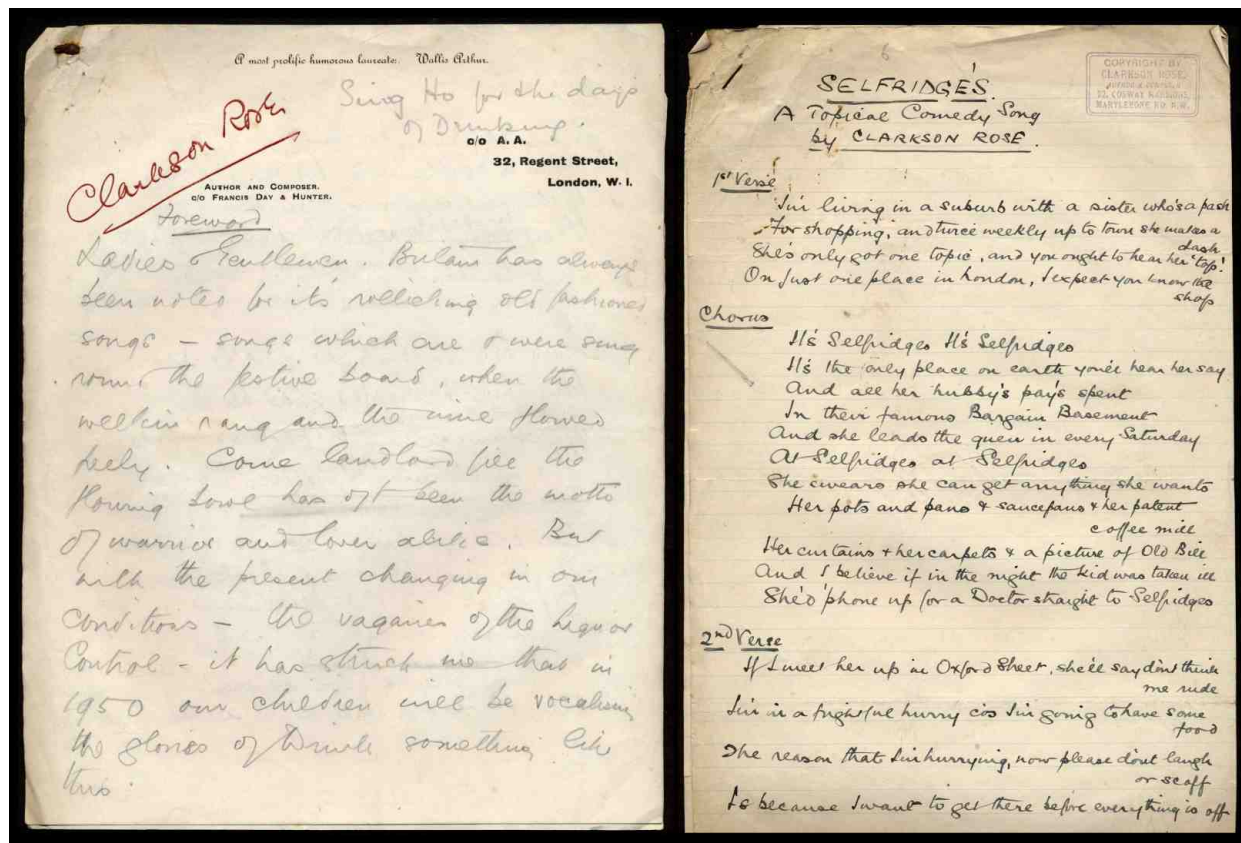 A most prolific humorous laureate: Wallis Arthur.
Sing Ho for the days
of Drinking.
Clarkson Rose
c/o A. A.
32, Regent Street,
London, W. 1.
AUTHOR AND COMPOSER.
C/O FRANCIS DAY & HUNTER.
Foreword
Ladies & Gentlemen. Britain has always
been noted for it's rollicking old fashioned
songs – songs which are & were sung
round the festive board, when the
welkin rang and the wine flowed
freely. Come landlord fill the
flowing bowl has oft been the motto
of warrior and lover alike. But
with the present changing in our
conditions – the vagaries of the Liquor
Control – it has struck me that in
1950 our children will be vocalising
the glories of Drink something like
this
SELFRIDGE'S.
A Topical Comedy Song
by CLARKSON ROSE.
COPYRIGHT BY
CLARKSON ROSE.
32, COSWAY MANSIONS,
MARYLEBONE RD. N.W.
1st Verse
I'm living in a suburb with a sister who's a pash
For shopping, and twice weekly up to town she makes a
dash
She's only got one topic, and you ought to hear her 'top'!
On just one place in London, I expect you know the
shop
Chorus
It's Selfridges It's Selfridges
It's the only place on earth you'll hear her say
And all her hubby's pay's spent
In their famous Bargain Basement
And she leads the queu in every Saturday
At Selfridges at Selfridges
She swears she can get anything she wants
Her pots and pans & saucepans & her patent
coffee mill
Her curtains & her carpets & a picture of Old Bill
And I believe if in the night the kid was taken ill
She'd 'phone up for a Doctor straight to Selfridges
2nd Verse
If I meet her up in Oxford Street, she'll say don't think
me rude
I'm in a frightful hurry cos I'm going to have some
food
The reason that I'm hurrying, now please don't laugh
or scoff
Is because I want to get there before everything is off